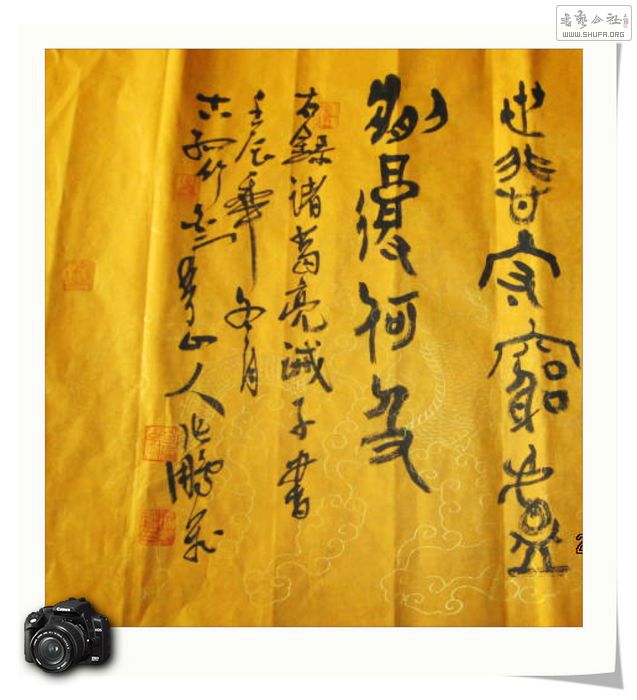 書藝公社
WWW.SHUFA.ORG
世悲守窮廬
將復何及
右錄諸葛亮誡子書
壬辰年冬月
古孤竹山人鵬
Canon